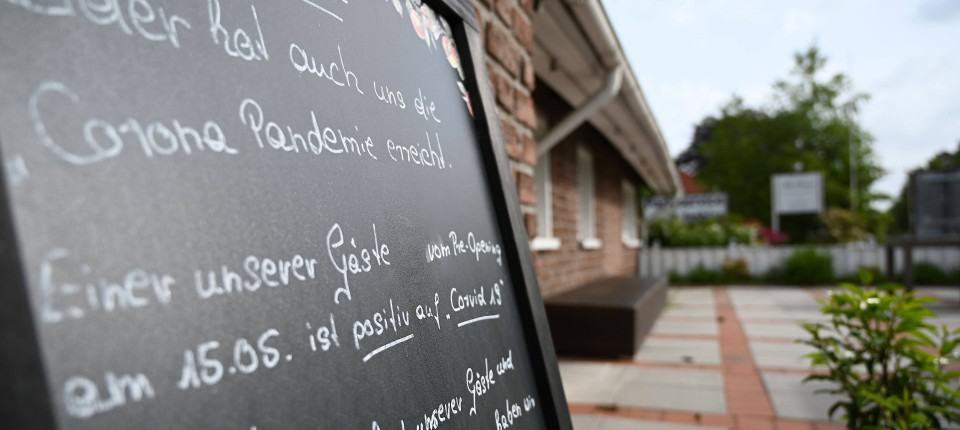 Leider hat auch uns die
Corona Pandemie erreicht.
Einer unserer Gäste vom Pre-Opening
am 15.05. ist positiv auf „Corvid 19"
unserer Gäste und
haben wir